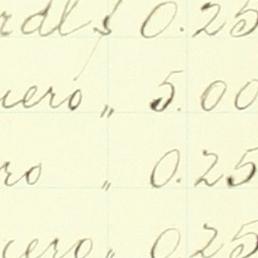 rdl $ 0.25
uero „ 5.00
ro „ 0.25
uero „ 0.25